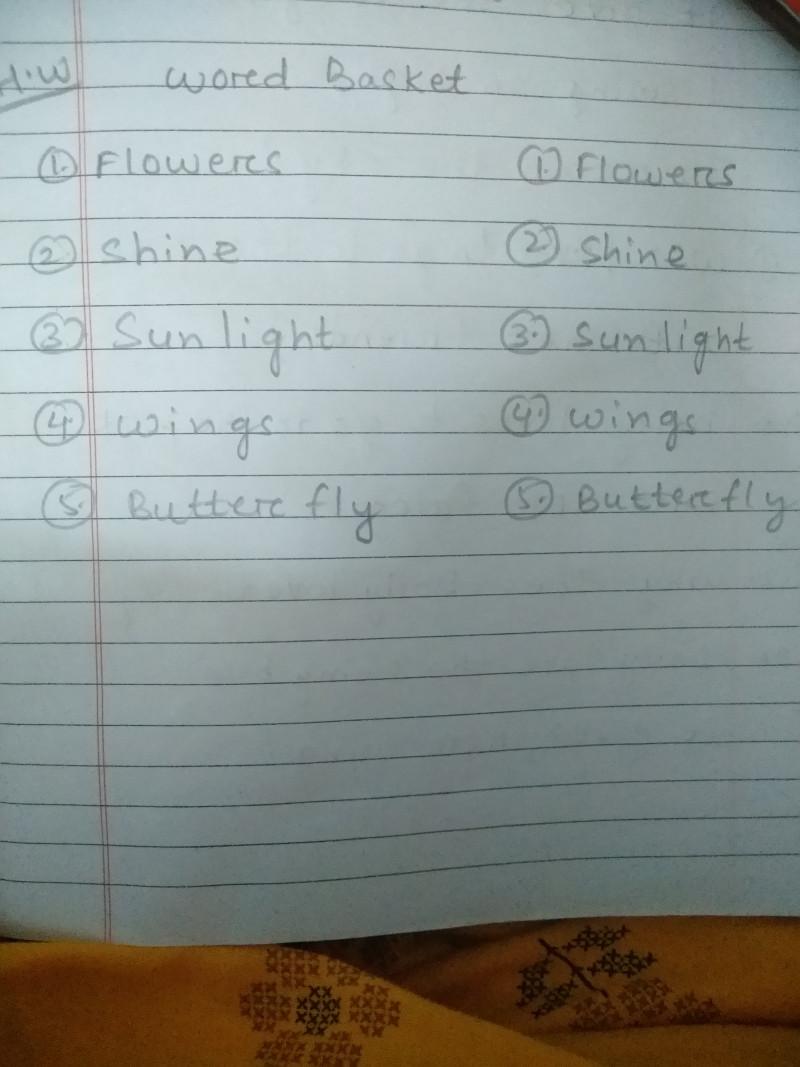 H.W Word Basket
① Flowers ① Flowers
② Shine ② Shine
③ Sunlight ③ Sunlight
④ wings ④ wings
⑤ Butterfly ⑤ Butterfly